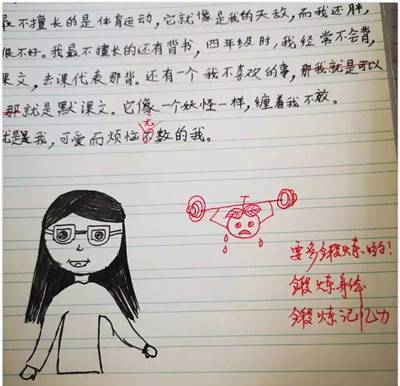 最不擅长的是体育运动，它就像是我的天敌，而我还胖，
很不好。我最不擅长的还有背书，四年级时，我经常不会背
课文，去课代表那背。还有一个我不喜欢的事，那我就是可以
那就是默课文。它像一个妖怪一样，缠着我不放。
就是我，可爱而烦恼无数的我。
要多锻炼哟！
锻炼身体
锻炼记忆力